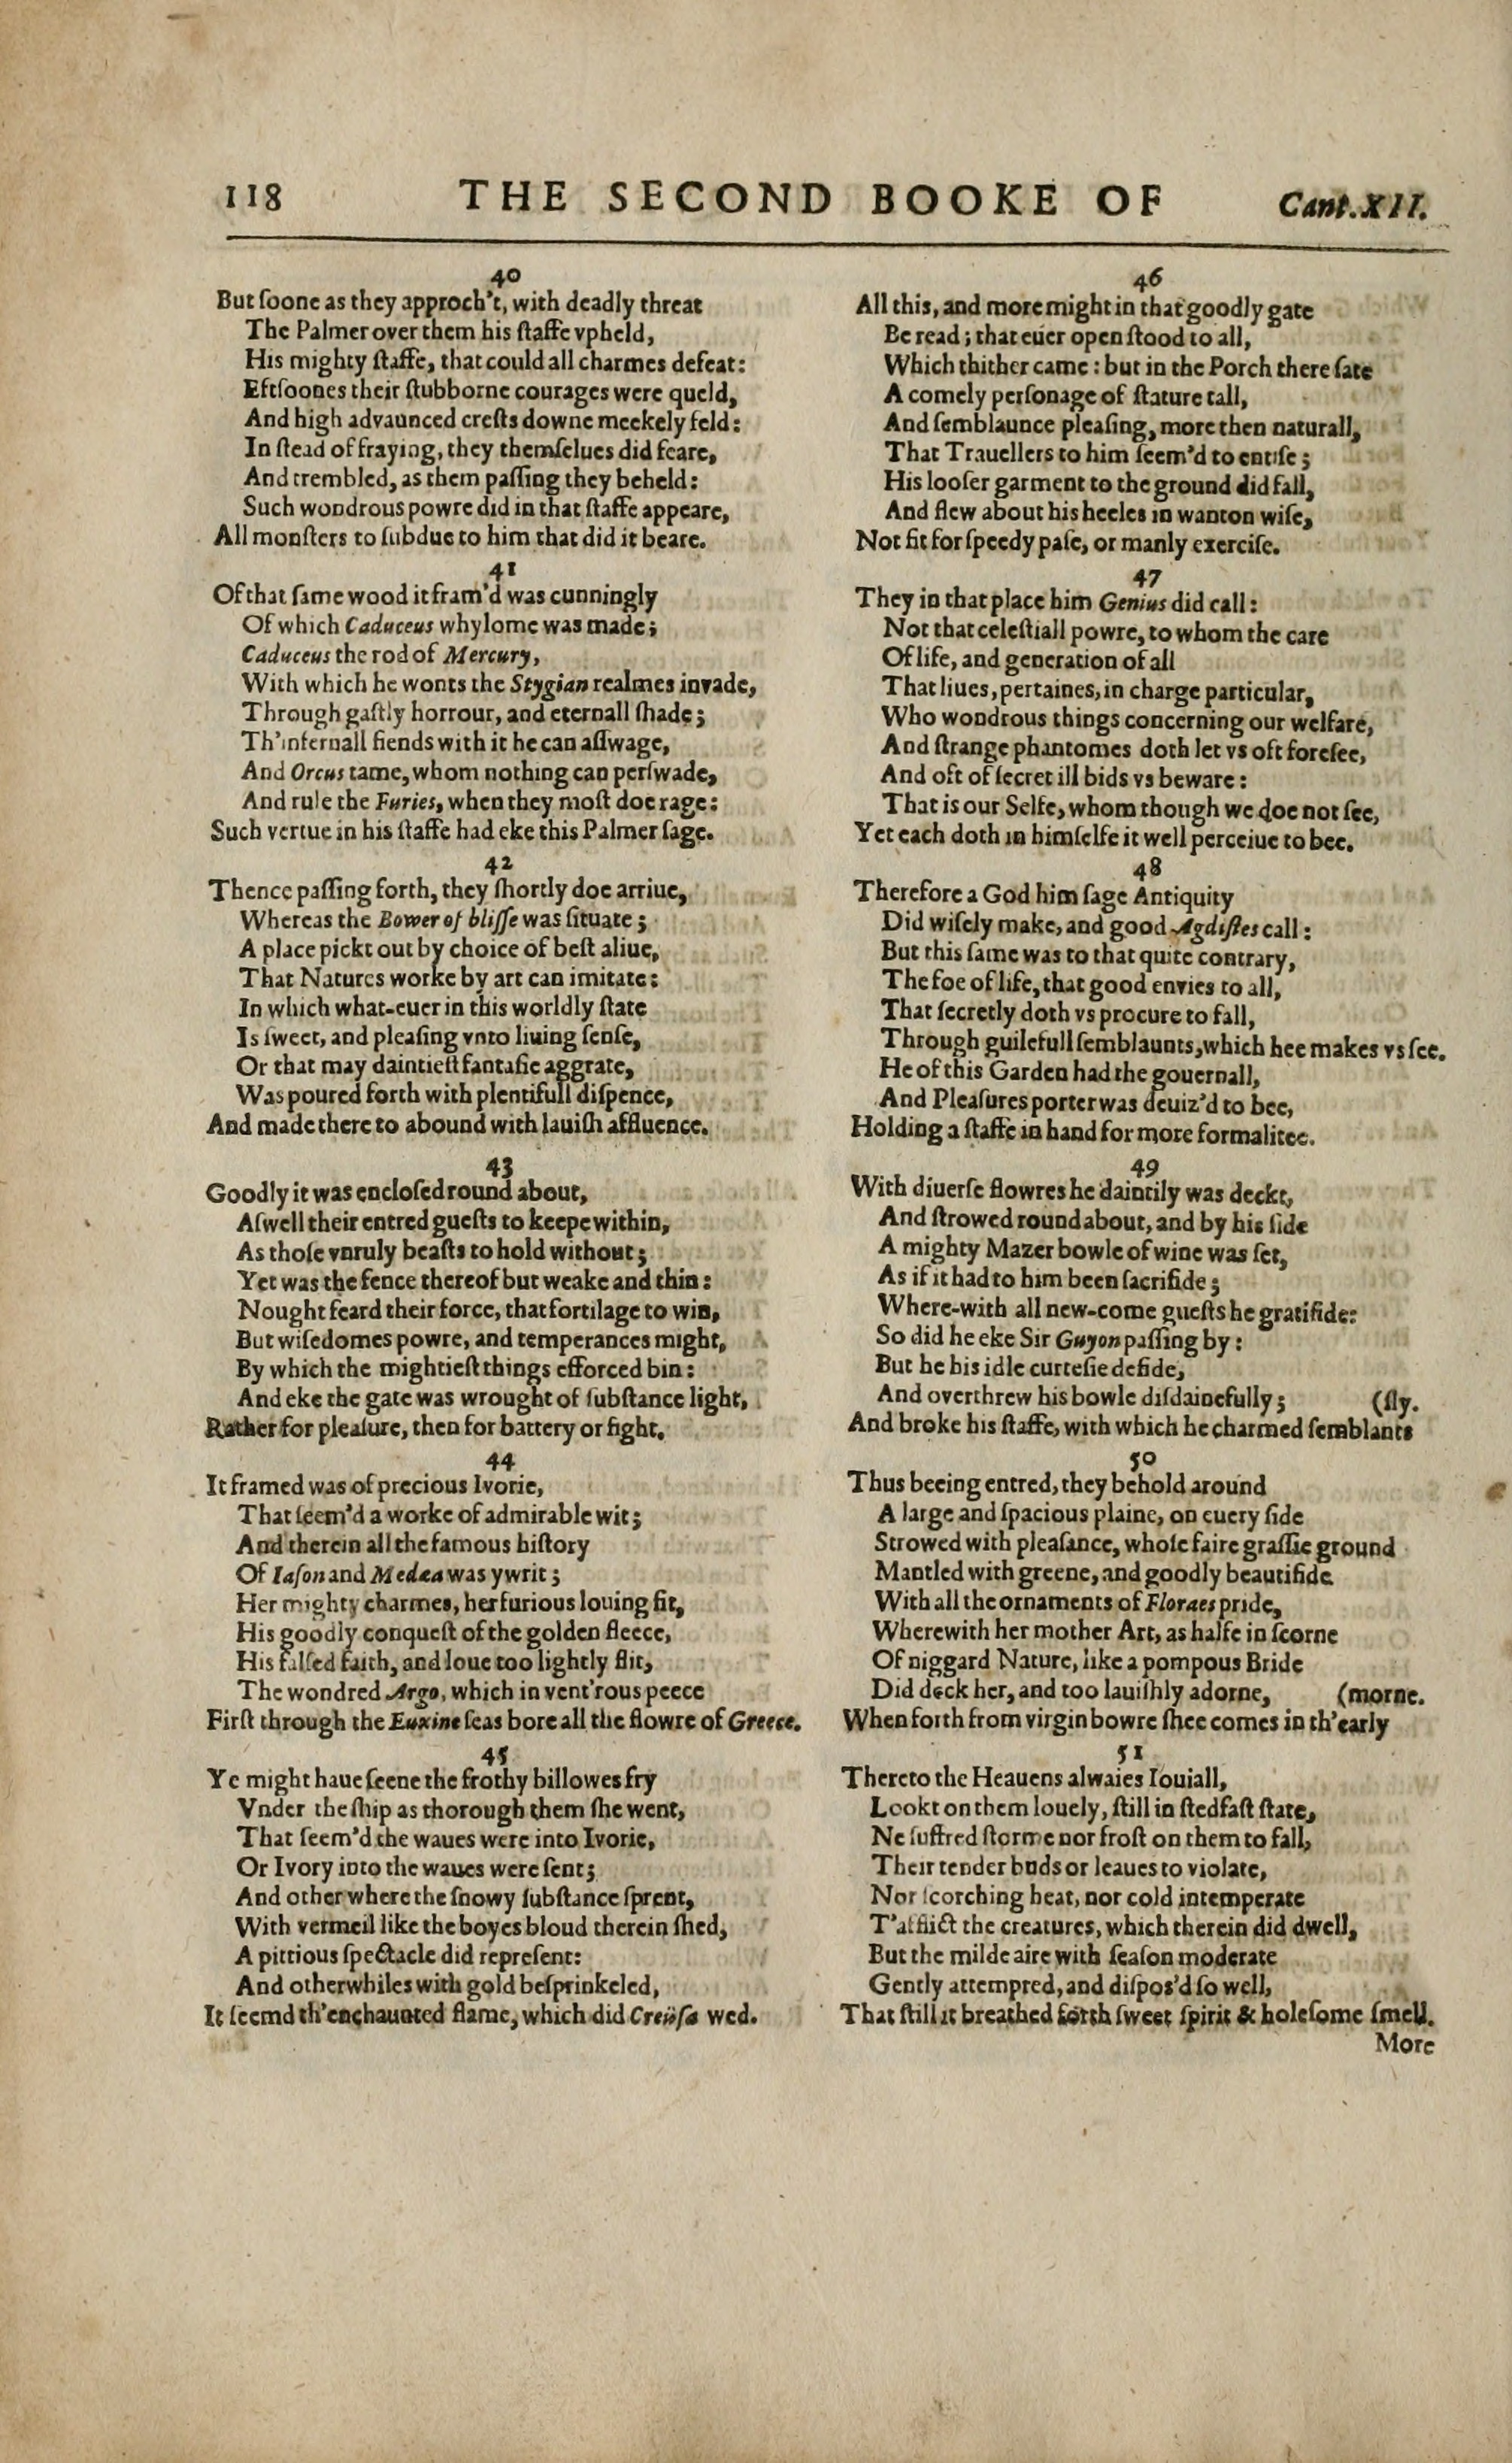 118 THE SECOND BOOKE OF Cant. XII.
40
But ſoone as they approch't, with deadly threat
The Palmer over them his ſtaffe vpheld,
His mighty ſtaffe, that could all charmes defeat:
Eftſoones their ſtubborne courages were queld,
And high advaunced creſts downe meekely feld:
In ſtead of fraying, they themſelues did feare,
And trembled, as them paſſing they beheld:
Such wondrous powre did in that ſtaffe appeare,
All monſters to ſubdue to him that did it beare.
41
Of that ſame wood it fram'd was cunningly
Of which Caduceus whylome was made;
Caduceus the rod of Mercury,
With which he wonts the Stygian realmes invade,
Through gaſtly horrour, and eternall ſhade;
Th'infernall fiends with it he can aſſwage,
And Orcus tame, whom nothing can perſwade,
And rule the Furies, when they moſt doe rage:
Such vertue in his ſtaffe had eke this Palmer ſage.
42
Thence paſſing forth, they ſhortly doe arriue,
Whereas the Bower of bliſſe was ſituate;
A place pickt out by choice of beſt aliue,
That Natures worke by art can imitate:
In which what-euer in this worldly ſtate
Is ſweet, and pleaſing vnto liuing ſenſe,
Or that may daintieſt fantaſie aggrate,
Was poured forth with plentifull diſpence,
And made there to abound with lauiſh affluence.
43
Goodly it was encloſed round about,
Aſwell their entred gueſts to keepe within,
As thoſe vnruly beaſts to hold without;
Yet was the fence thereof but weake and thin:
Nought feard their force, that fortilage to win,
But wiſedomes powre, and temperances might,
By which the mightieſt things efforced bin:
And eke the gate was wrought of ſubſtance light,
Rather for pleaſure, then for battery or fight.
44
It framed was of precious Ivorie,
That ſeem'd a worke of admirable wit;
And therein all the famous hiſtory
Of Iaſon and Medæa was ywrit;
Her mighty charmes, her furious louing fit,
His goodly conqueſt of the golden fleece,
His falſed faith, and loue too lightly flit,
The wondred Argo, which in vent'rous peece
Firſt through the Euxine ſeas bore all the flowre of Greece.
45
Ye might haue ſeene the frothy billowes fry
Vnder the ſhip as thorough them ſhe went,
That ſeem'd the waues were into Ivorie,
Or Ivory into the waues were ſent;
And other where the ſnowy ſubſtance ſprent,
With vermeil like the boyes bloud therein ſhed,
A pittious ſpectacle did repreſent:
And otherwhiles with gold beſprinkeled,
It ſeemd th'enchaunted flame, which did Creüſa wed.
46
All this, and more might in that goodly gate
Be read; that euer open ſtood to all,
Which thither came: but in the Porch there ſate
A comely perſonage of ſtature tall,
And ſemblaunce pleaſing, more then naturall,
That Trauellers to him ſeem'd to entiſe;
His looſer garment to the ground did fall,
And flew about his heeles in wanton wiſe,
Not fit for ſpeedy paſe, or manly exerciſe.
47
They in that place him Genius did call:
Not that celeſtiall powre, to whom the care
Of life, and generation of all
That liues, pertaines, in charge particular,
Who wondrous things concerning our welfare,
And ſtrange phantomes doth let vs oft foreſee,
And oft of ſecret ill bids vs beware:
That is our Selfe, whom though we doe not ſee,
Yet each doth in himſelfe it well perceiue to bee.
48
Therefore a God him ſage Antiquity
Did wiſely make, and good Agdiſtes call:
But this ſame was to that quite contrary,
The foe of life, that good envies to all,
That ſecretly doth vs procure to fall,
Through guilefull ſemblaunts, which hee makes vs ſee.
He of this Garden had the gouernall,
And Pleaſures porter was deuiz'd to bee,
Holding a ſtaffe in hand for more formalitee.
49
With diuerſe flowres he daintily was deckt,
And ſtrowed round about, and by his ſide
A mighty Mazer bowle of wine was ſet,
As if it had to him been ſacrifide;
Where-with all new-come gueſts he gratifide:
So did he eke Sir Guyon paſſing by:
But he his idle curteſie defide,
And overthrew his bowle diſdainefully; (ſly.
And broke his ſtaffe, with which he charmed ſemblants
50
Thus beeing entred, they behold around
A large and ſpacious plaine, on euery ſide
Strowed with pleaſance, whoſe faire graſſie ground
Mantled with greene, and goodly beautifide
With all the ornaments of Floraes pride,
Wherewith her mother Art, as halfe in ſcorne
Of niggard Nature, like a pompous Bride
Did deck her, and too lauiſhly adorne, (morne.
When forth from virgin bowre ſhee comes in th'early
51
Thereto the Heauens alwaies Iouiall,
Lookt on them louely, ſtill in ſtedfaſt ſtate,
Ne ſuffred ſtorme nor froſt on them to fall,
Their tender buds or leaues to violate,
Nor ſcorching heat, nor cold intemperate
T'afflict the creatures, which therein did dwell,
But the milde aire with ſeaſon moderate
Gently attempred, and diſpos'd ſo well,
That ſtill it breathed forth ſweet ſpirit & holeſome ſmell.
More